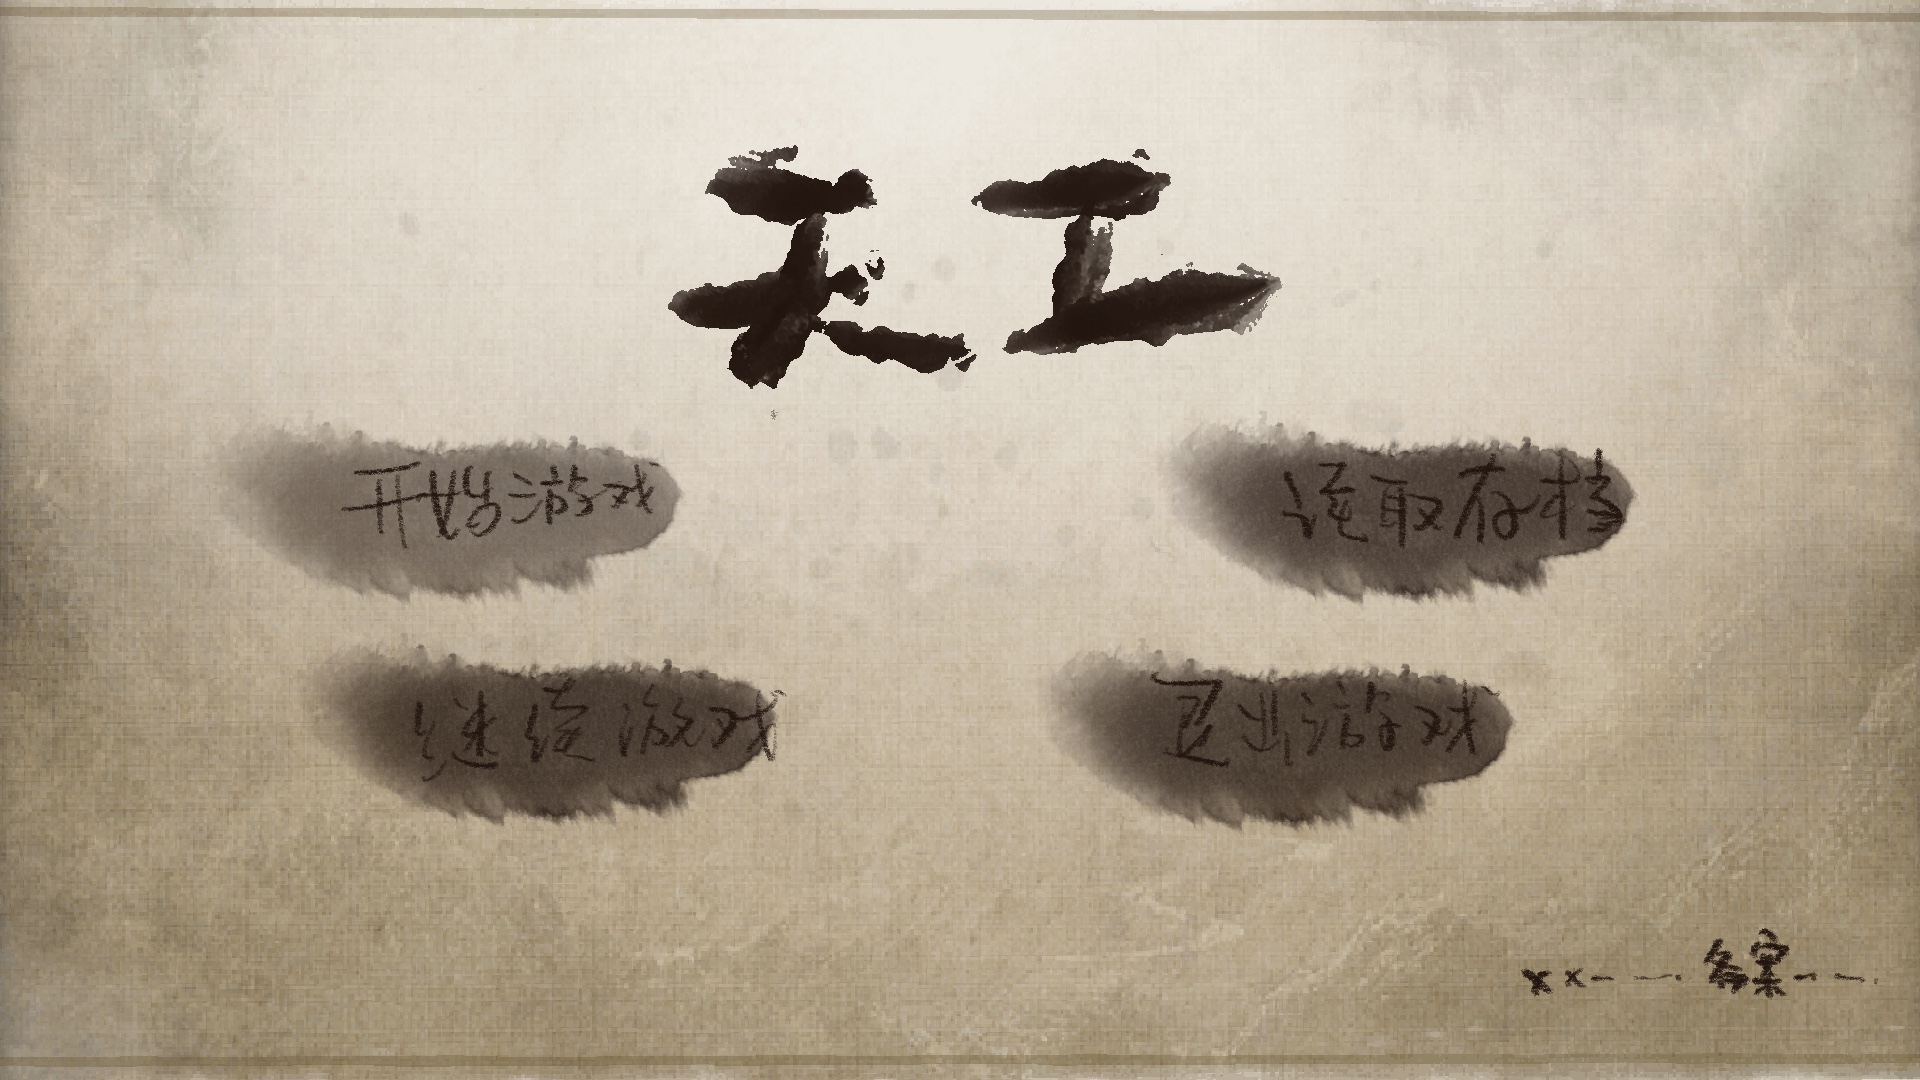 天工
开始游戏
读取存档
继续游戏
退出游戏
xx-- 备案---